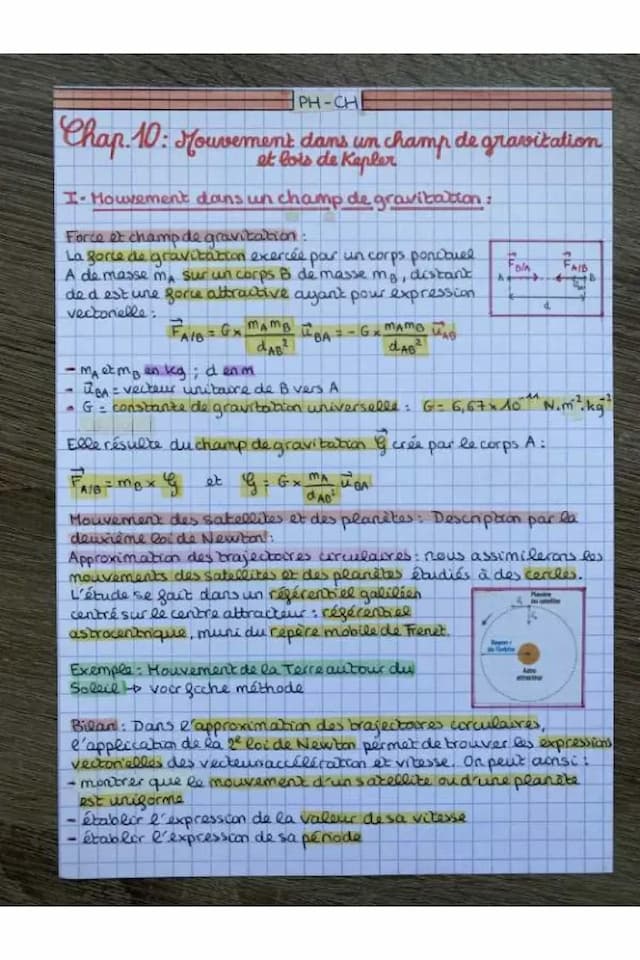 PH-CH
Chap.10: Mouvement dans un champ de gravitation
et lois de Kepler
I- Mouvement dans un champ de gravitation :
Force et champ de gravitation :
La force de gravitation exercée par un corps ponctuel
A de masse mA sur un corps B de masse mB, distant
de d est une force attractive ayant pour expression
vectorielle :
F B/A F A/B
A B
d
F A/B = G × mA mB / dAB² u BA = - G × mA mB / dAB² u AB
- mA et mB en kg ; d en m
- u BA = vecteur unitaire de B vers A
- G = constante de gravitation universelle : G = 6,67 × 10⁻¹¹ N.m².kg⁻²
Elle résulte du champ de gravitation G crée par le corps A :
F A/B = mB × G et G = G × mA / dAB² u BA
Mouvement des satellites et des planètes : Description par la
deuxième loi de Newton :
Approximation des trajectoires circulaires : nous assimilerons les
mouvements des satellites et des planètes étudiés à des cercles.
L'étude se fait dans un référentiel galiléen
centré sur le centre attracteur : référentiel
astrocentrique, muni du repère mobile de Frenet.
Planète
ou satellite
Rayon r
de l'orbite
Astre
attracteur
Exemple : Mouvement de la Terre autour du
Soleil → voir fiche méthode
Bilan : Dans l'approximation des trajectoires circulaires,
l'application de la 2e loi de Newton permet de trouver les expressions
vectorielles des vecteurs accélération et vitesse. On peut ainsi :
- montrer que le mouvement d'un satellite ou d'une planète
est uniforme
- établir l'expression de la valeur de sa vitesse
- établir l'expression de sa période